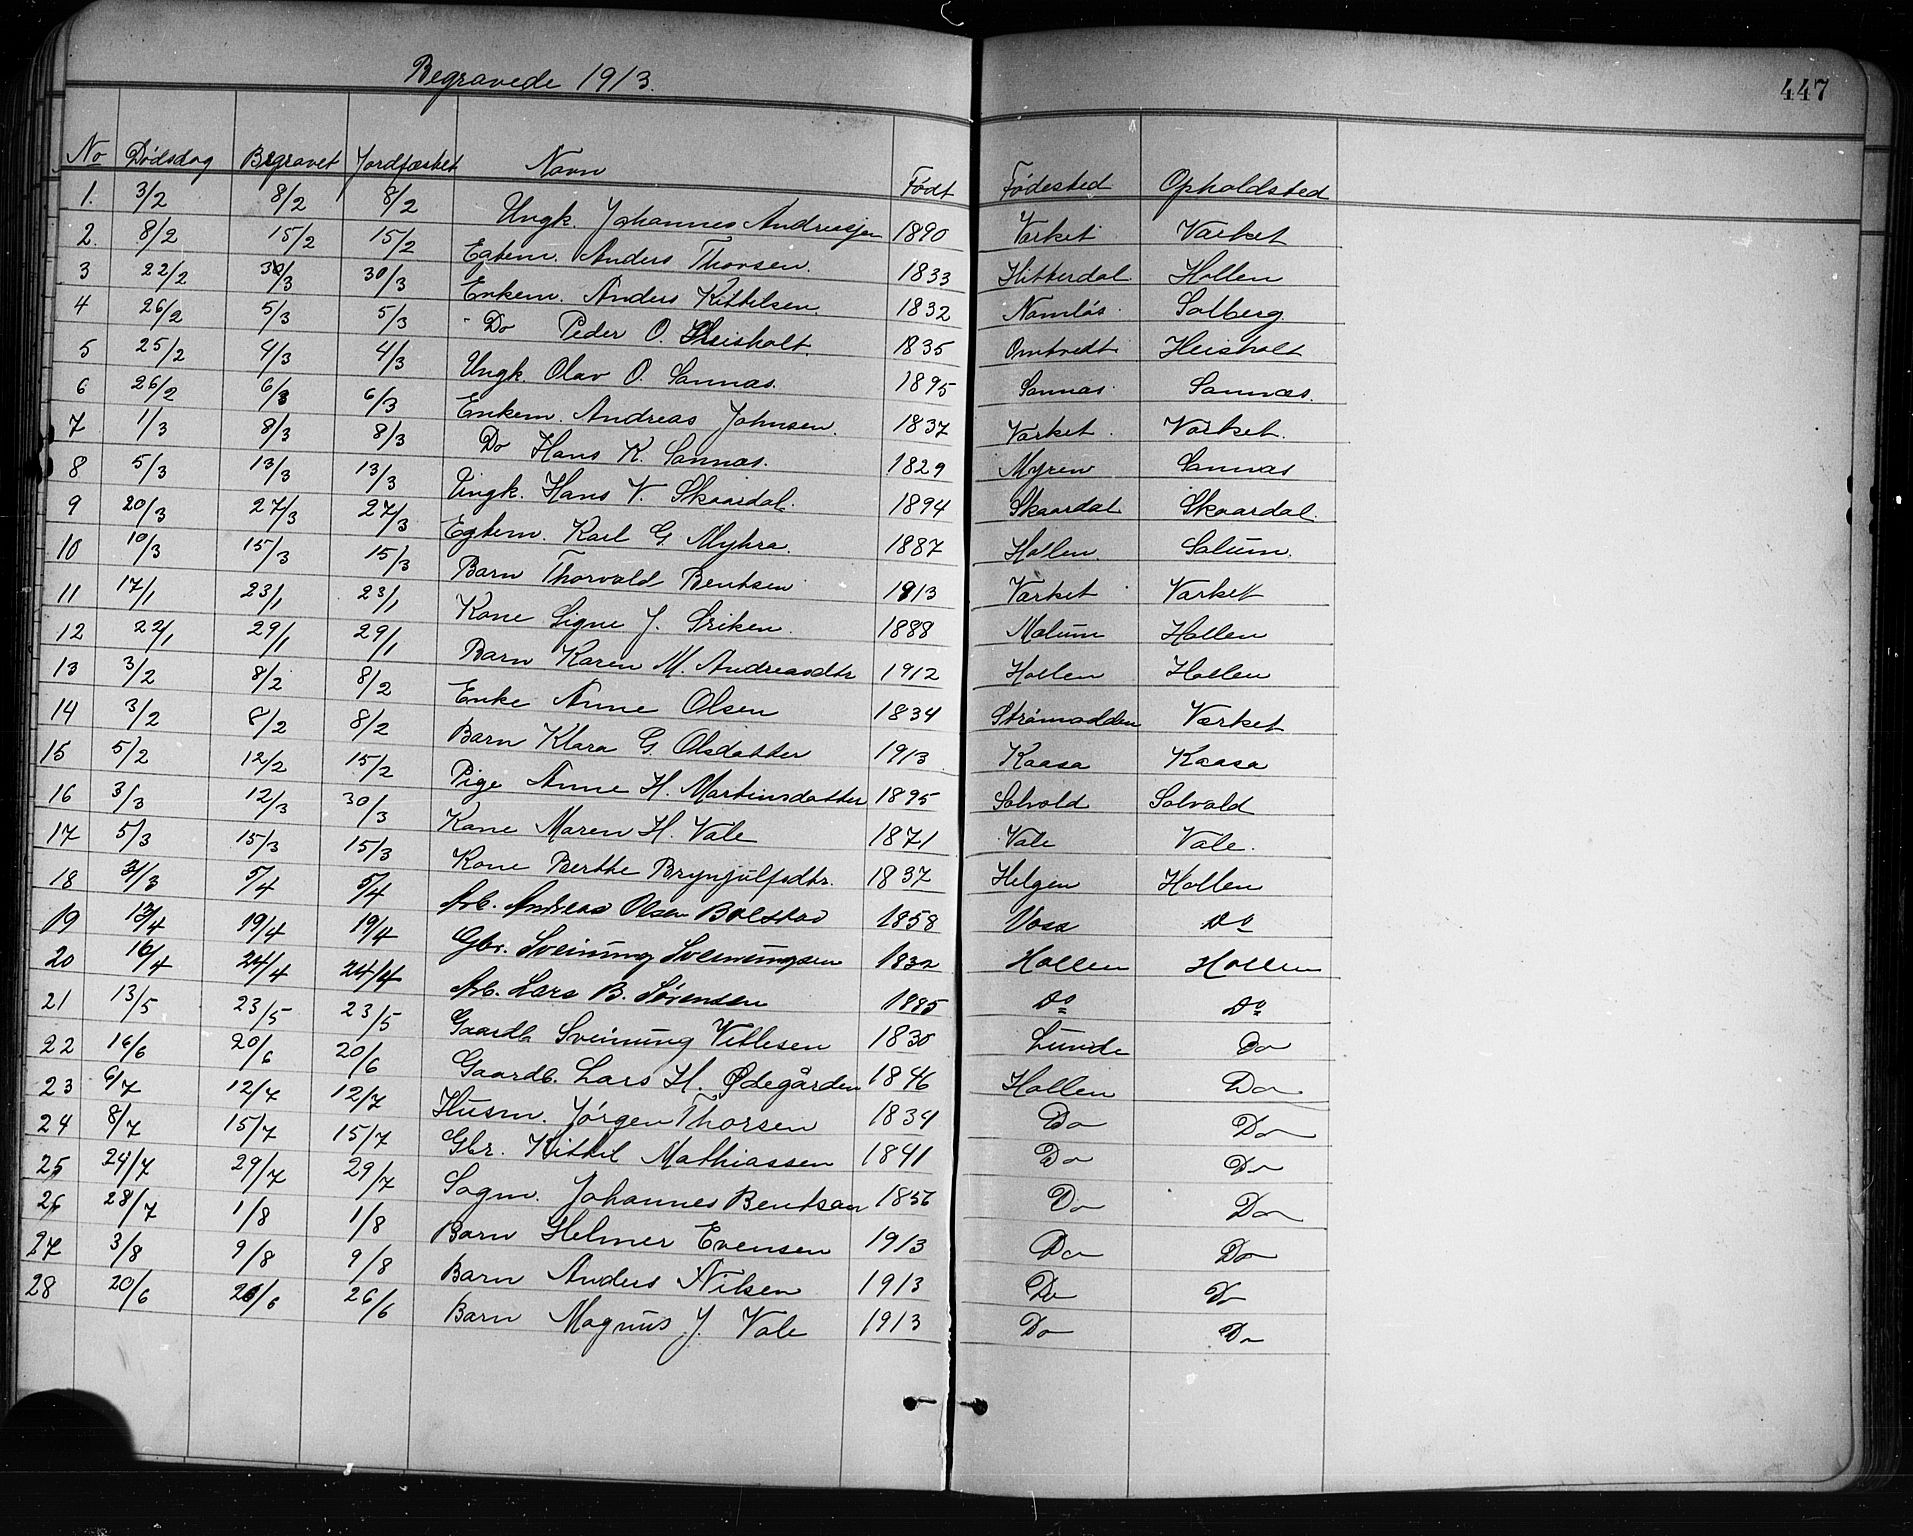 Begravede 1913.
447
No Dødsdag Begravet Jordfæstet Navn Født Fødested Opholdsted
1. 3/2 8/2 8/2 Ungk. Johannes Andreasen 1890 Værket Værket
2. 8/2 15/2 15/2 Egtem. Anders Thorsen. 1833 Hitterdal Hollen
3 22/2 30/3 30/3 Enkem. Anders Kittilsen 1832 Namløs. Solberg
4 26/2 5/3 5/3 Do Peder O. Heisholt. 1835 Omtvedt Heisholt
5 25/2 4/3 4/3 Ungk. Olav O. Sannæs. 1895 Sannæs. Sannæs.
6 26/2 6/3 6/3 Enkem. Andreas Johnsen. 1837 Værket. Værket.
7 1/3 8/3 8/3 Do Hans K. Sannæs. 1829 Myren Sannæs
8 5/3 13/3 13/3 Ungk. Hans V. Skaardal. 1894 Skaardal Skaardal.
9 20/3 27/3 27/3 Egtem. Karl G. Myhra. 1887 Hollen. Solum.
10 10/3 15/3 15/3 Barn Thorvald Bentsen 1913 Værket Værket
11 17/1 23/1 23/1 Kone Signe J. Sriken. 1888 Melum Hollen
12 22/1 29/1 29/1 Barn Karen M. Andreasdtr 1912 Hollen Hollen
13 3/2 8/2 8/2 Enke Anne Olsen 1834 Strømodden Værket
14 3/2 8/2 8/2 Barn Klara G. Olsdatter 1913 Kaasa Kaasa
15 5/2 12/2 15/2 Pige Anne H. Martinsdatter 1895 Solvold Solvold
16 3/3 12/3 30/3 Kone Maren H. Vale 1871 Vale Vale.
17 5/3 15/3 15/3 Kone Berthe Brynjulfsdtr. 1837 Helgen Hollen
18 31/3 5/4 5/4 Arb. Andreas Olsen Bolstad 1858 Voss Do
19 13/4 19/4 19/4 Gbr. Sveinung Sveinungsen 1832 Hollen Hollen
20 16/4 24/4 24/4 Arb. Lars B. Sørensen 1885 Do Do
21 13/5 23/5 23/5 Gaardb Sveinung Vetlesen 1830 Lunde Do
22 16/6 20/6 20/6 Gaardb. Lars H. Ødegården 1846 Hollen Do
23 6/7 12/7 12/7 Husm. Jørgen Thorsen 1834 Do Do
24 8/7 15/7 15/7 Gbr. Kittil Mathiassen 1841 Do Do
25 24/7 29/7 29/7 Sagm. Johannes Bentsen 1856 Do Do
26 28/7 1/8 1/8 Barn Helmer Evensen 1913 Do Do
27 3/8 9/8 9/8 Barn Anders Nilsen 1913 Do Do
28 20/6 26/6 26/6 Barn Magnus J. Vale 1913 Do Do